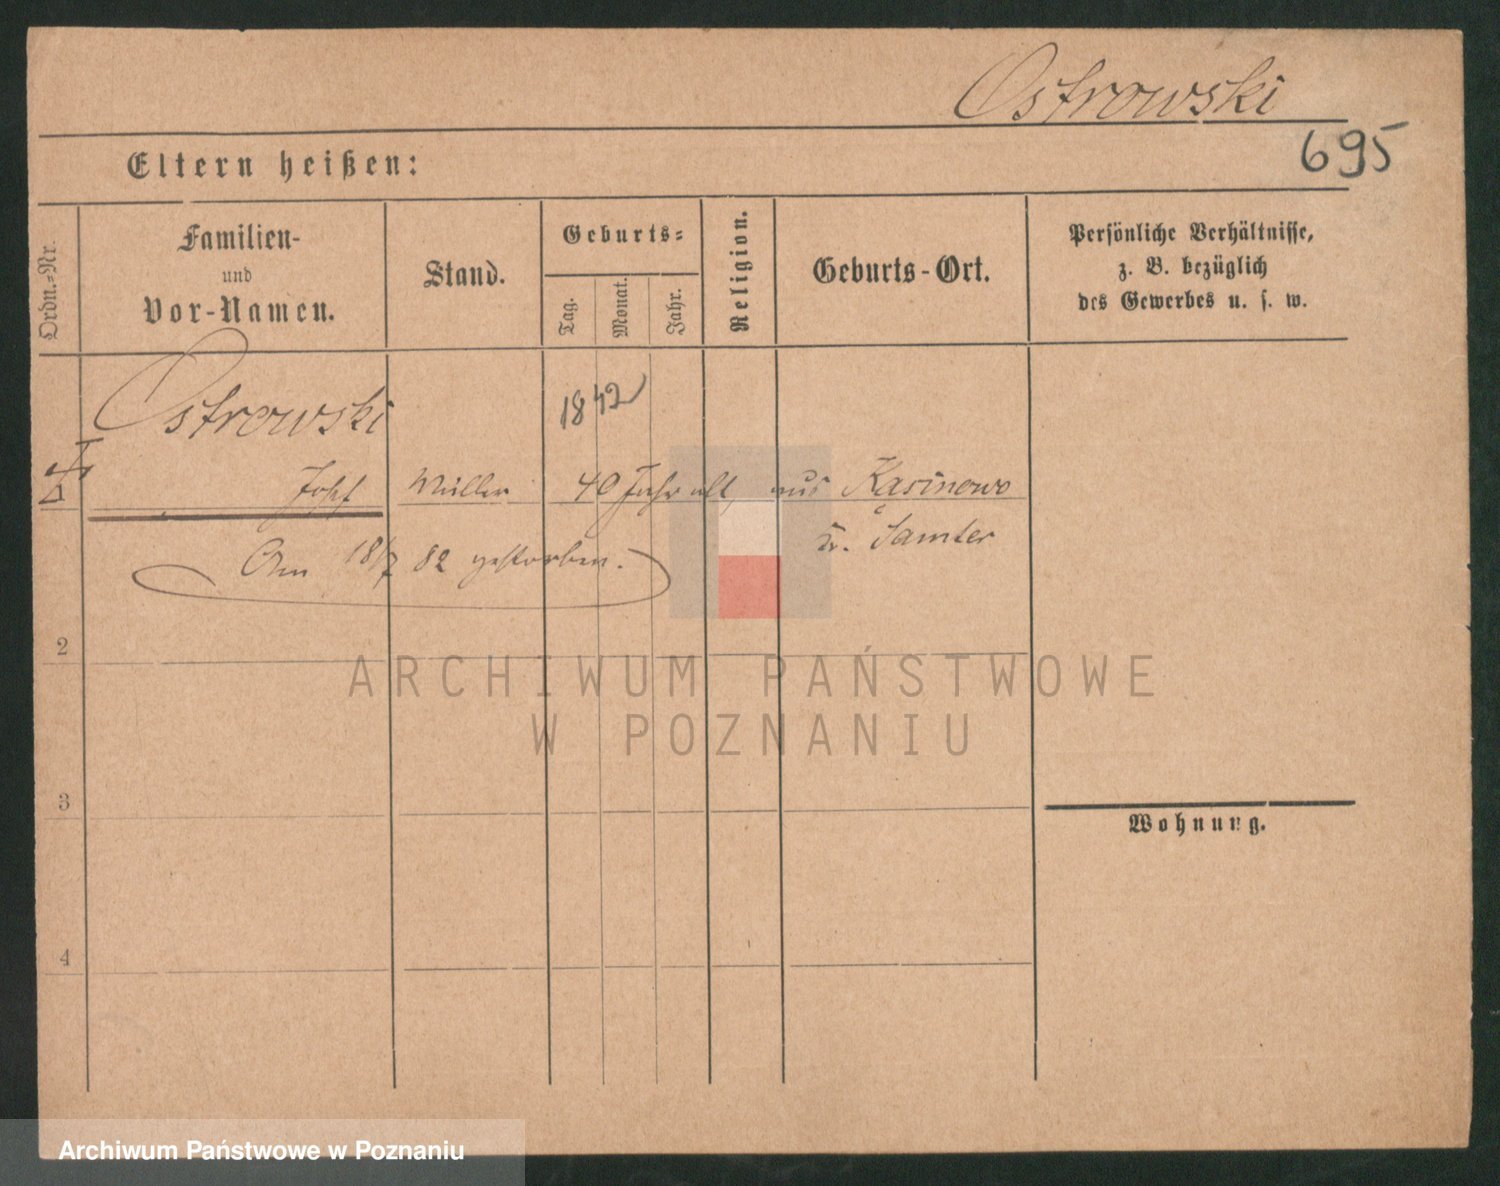 Ostrowski
695
Eltern heißen:
Ordn.-Nr.
Familien-
und
Vor-Namen.
Stand.
Geburts-
Tag.
Monat.
Jahr.
Religion.
Geburts-Ort.
Persönliche Verhältnisse,
z. B. bezüglich
des Gewerbes u. s. w.
Ostrowski
1842
Josef Müller 40 Jahr alt, aus Kasinowo
Kr. Samter
Am 18/7 82 gestorben.
2
ARCHIWUM PAŃSTWOWE
W POZNANIU
3
Wohnung.
4
Archiwum Państwowe w Poznaniu